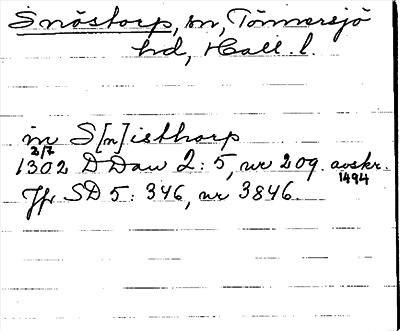 Snöstorp, sn, Tönnersjö
hd, Hall. l.
in S[n]isthorp
2/7
1302 DDan 2:5, nr 209. avskr.
1494
Jfr SD 5: 346, nr 3846.